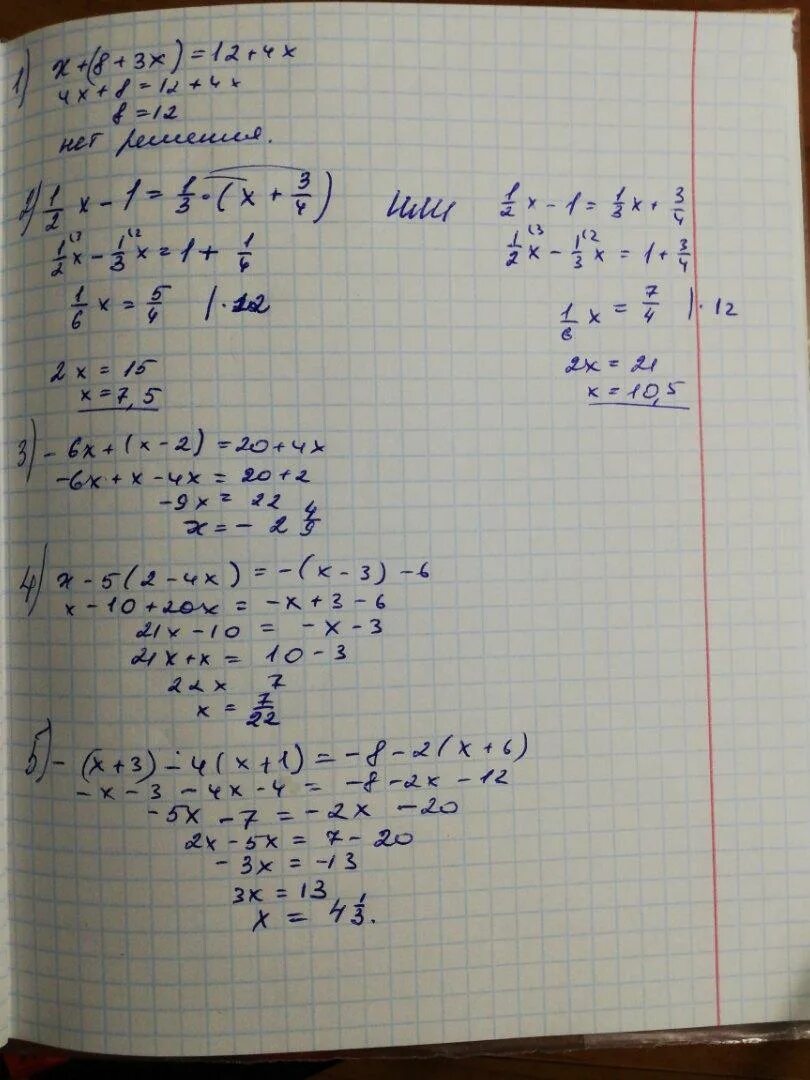 1) x+(8+3x)=12+4x
4x+8=12+4x
8=12
нет решения.
2) 1/2 x - 1 = 1/3 · (x + 3/4)
1/2 (3 x - 1/3 (2 x = 1 + 1/4
1/6 x = 5/4 | · 12
2x = 15
x = 7,5
или
1/2 x - 1 = 1/3 x + 3/4
1/2 (3 x - 1/3 (2 x = 1 + 3/4
1/6 x = 7/4 | · 12
2x = 21
x = 10,5
3) - 6x + (x - 2) = 20 + 4x
-6x + x - 4x = 20 + 2
-9x = 22
x = - 2 4/9
4) x - 5(2 - 4x) = -(x - 3) - 6
x - 10 + 20x = -x + 3 - 6
21x - 10 = -x - 3
21x + x = 10 - 3
22x 7
x = 7/22
5) - (x+3) - 4(x+1) = -8 - 2(x+6)
-x - 3 - 4x - 4 = -8 - 2x - 12
-5x - 7 = -2x - 20
2x - 5x = 7 - 20
- 3x = -13
3x = 13
x = 4 1/3.